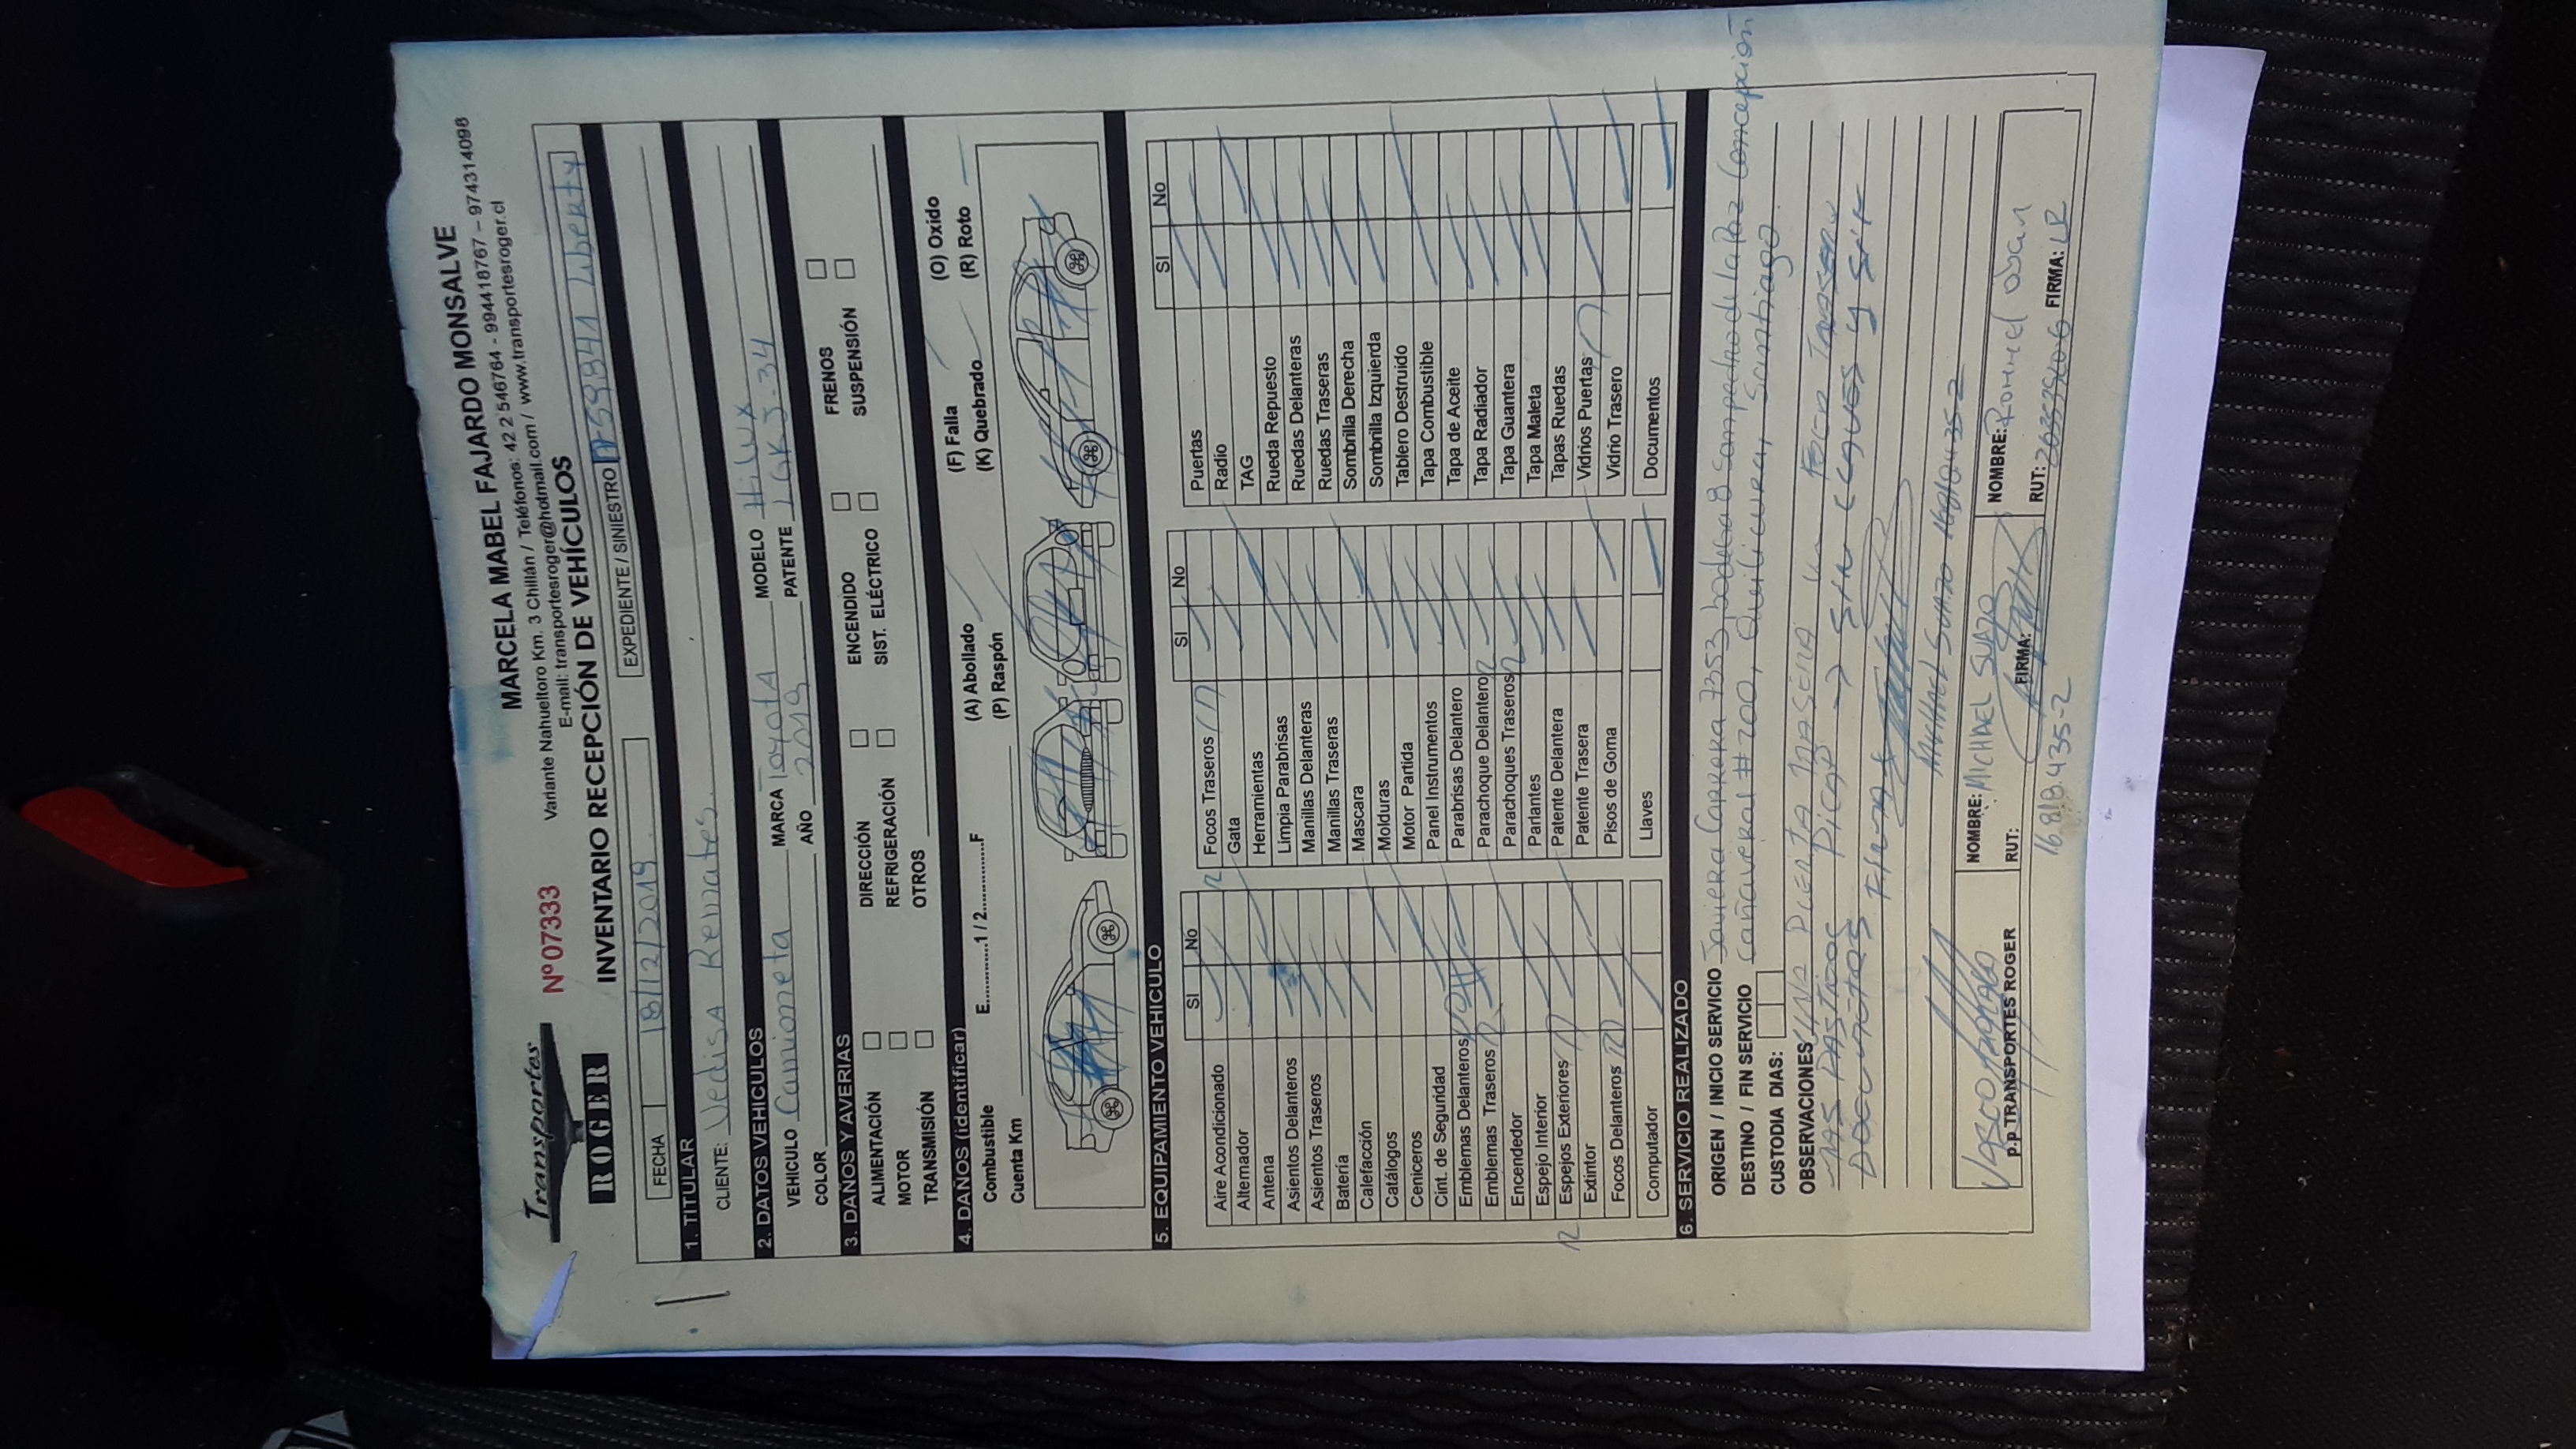 Transportes
ROGER
Nº 07333
MARCELA MABEL FAJARDO MONSALVE
Variante Nahueltoro Km. 3 Chillán / Teléfonos: 42 2 546764 - 994418767 - 974314098
E-mail: transportesroger@hotmail.com / www.transportesroger.cl
INVENTARIO RECEPCIÓN DE VEHÍCULOS
FECHA 18/12/2019 EXPEDIENTE / SINIESTRO Liberty
1. TITULAR
CLIENTE: Vedisa Remates.
2. DATOS VEHICULOS
VEHICULO Camioneta MARCA Toyota MODELO Hilux
COLOR AÑO 2019 PATENTE LGKJ.34
3. DAÑOS Y AVERIAS
ALIMENTACIÓN DIRECCIÓN ENCENDIDO FRENOS
MOTOR REFRIGERACIÓN SIST. ELÉCTRICO SUSPENSIÓN
TRANSMISIÓN OTROS
4. DAÑOS (identificar)
Combustible E.............1 / 2..............F (A) Abollado (F) Falla (O) Oxido
Cuenta Km (P) Raspón (K) Quebrado (R) Roto
5. EQUIPAMIENTO VEHICULO
SI No SI No SI No
Aire Acondicionado Focos Traseros Puertas
Alternador Gata Radio
Antena Herramientas TAG
Asientos Delanteros Limpia Parabrisas Rueda Repuesto
Asientos Traseros Manillas Delanteras Ruedas Delanteras
Batería Manillas Traseras Ruedas Traseras
Calefacción Mascara Sombrilla Derecha
Catálogos Molduras Sombrilla Izquierda
Ceniceros Motor Partida Tablero Destruido
Cint. de Seguridad Panel Instrumentos Tapa Combustible
Emblemas Delanteros Parabrisas Delantero Tapa de Aceite
Emblemas Traseros Parachoque Delantero Tapa Radiador
Encendedor Parachoques Traseros Tapa Guantera
Espejo Interior Parlantes Tapa Maleta
Espejos Exteriores Patente Delantera Tapas Ruedas
Extintor Patente Trasera Vidrios Puertas
Focos Delanteros Pisos de Goma Vidrio Trasero
Computador Llaves Documentos
6. SERVICIO REALIZADO
ORIGEN / INICIO SERVICIO Javiera Carrera 7353 bodega 8 San pedro de la Paz Concepción
DESTINO / FIN SERVICIO Cañaveral # 200, Quilicura, Santiago.
CUSTODIA DIAS:
OBSERVACIONES UNA PUERTA TRASERA
Sin llaves y sin
Documentos
Michael Suazo 16.818.435-2
p.p TRANSPORTES ROGER
NOMBRE: MICHAEL SUAZO FIRMA:
RUT: 16.818.435-2
NOMBRE: Rommel
RUT: FIRMA: